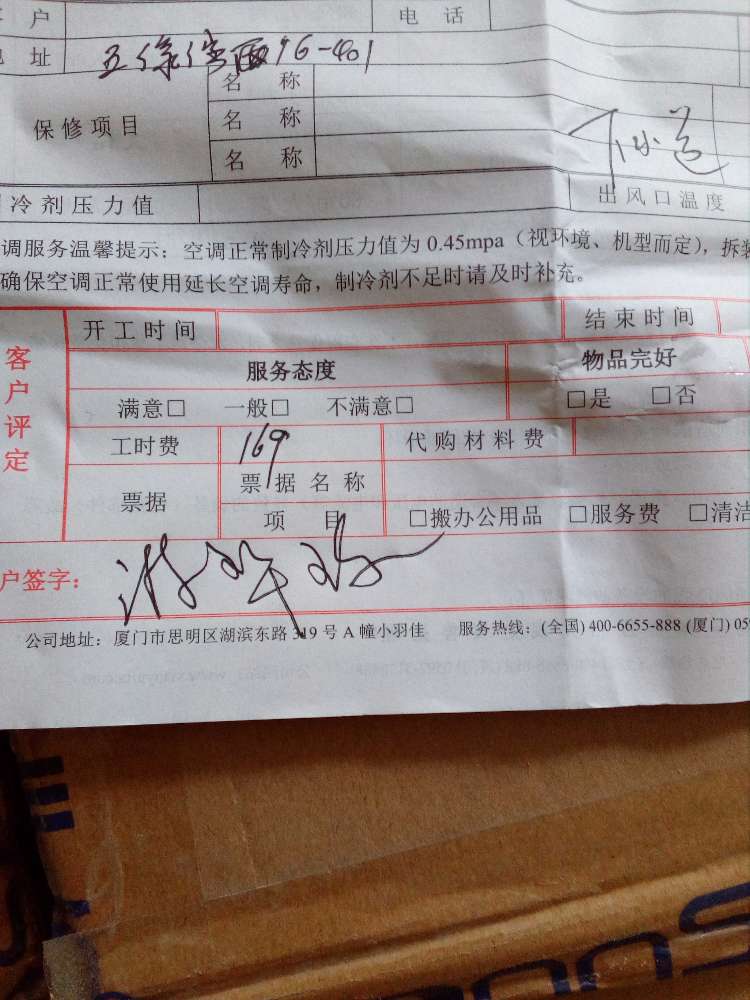 户 电 话
址 16-401
名 称
保修项目 名 称
名 称
冷剂压力值 出风口温度
调服务温馨提示：空调正常制冷剂压力值为 0.45mpa（视环境、机型而定），拆装
确保空调正常使用延长空调寿命，制冷剂不足时请及时补充。
客户评定
开工时间 结束时间
服务态度 物品完好
满意□ 一般□ 不满意□ □是 □否
工时费 169 代购材料费
票据 票据名称
项 目 □搬办公用品 □服务费 □清洁
户签字：
公司地址：厦门市思明区湖滨东路 319 号 A 幢小羽佳 服务热线：(全国) 400-6655-888 (厦门) 059